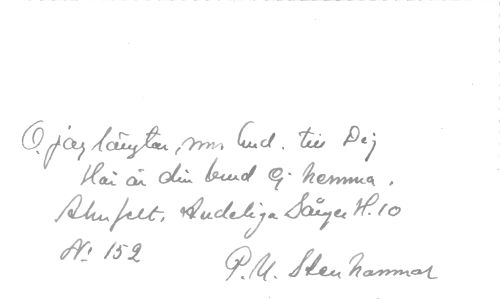 O, jag längtar, min Gud. till Dej
Här är din brud ej hemma.
Ahnfelt. Andeliga Sånger H.10
No 152
P.U. Stenhammar